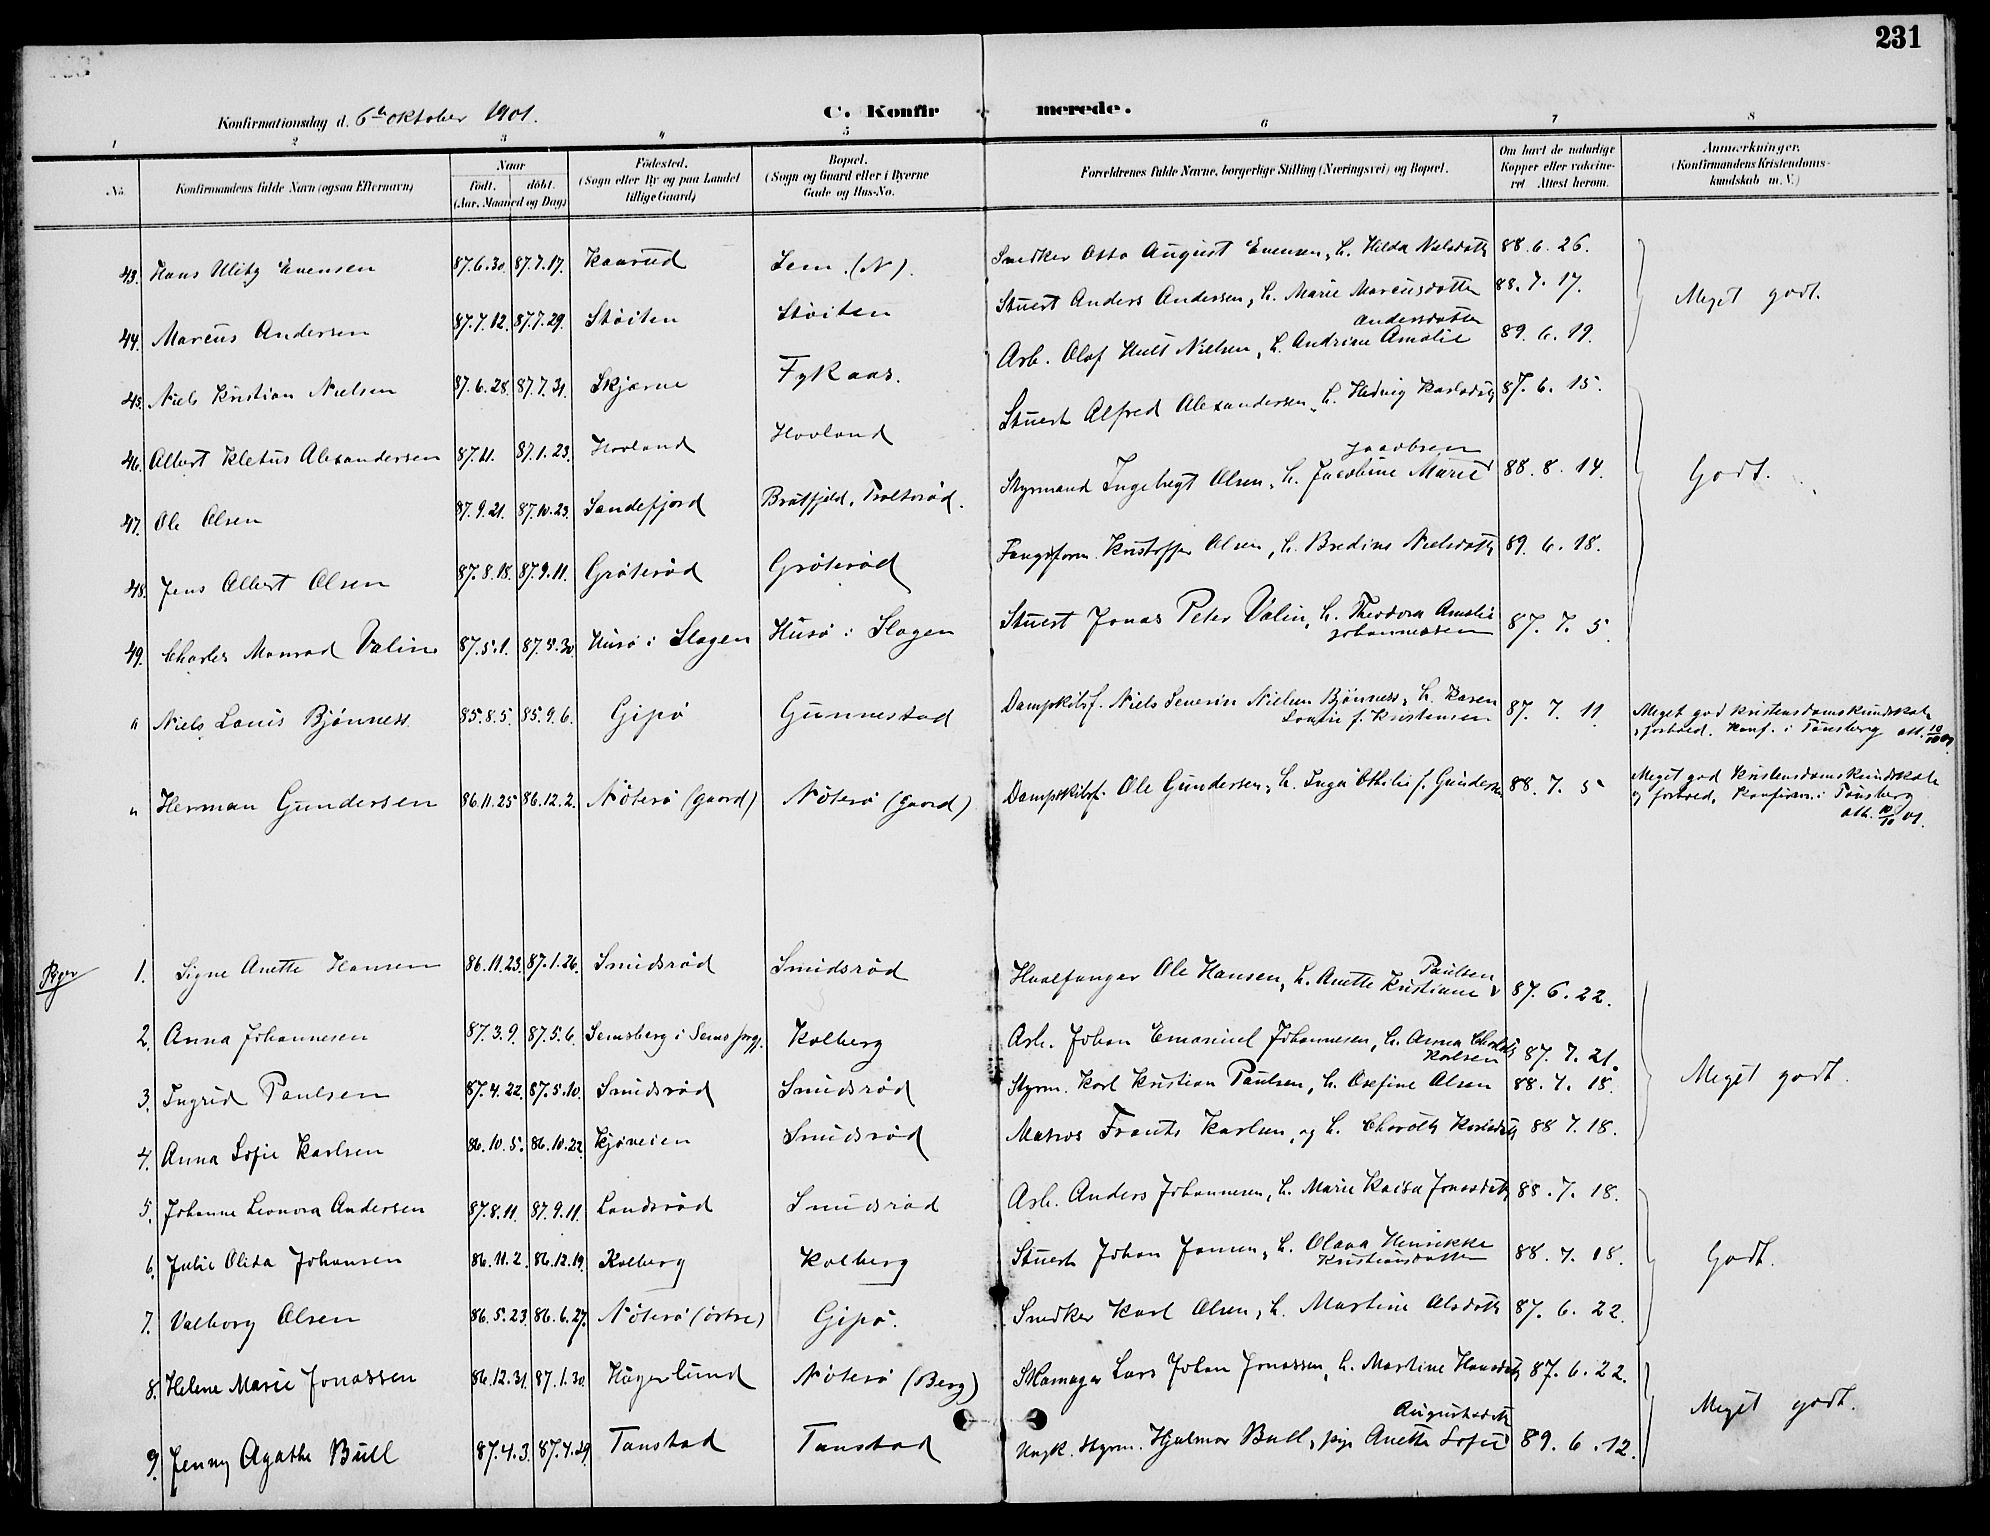 231
Konfirmationsdag d. 6te oktober 1901. C. Konfirmerede.
1 2 3 4 5 6 7 8
No. Konfirmandens fulde Navn (ogsaa Efternavn) Naar født. døbt. (Aar, Maaned og Dag) Fødested. (Sogn eller By og paa Landet tillige Gaard) Bopæl. (Sogn og Gaard eller i Byerne Gade og Hus-No. Forældrenes fulde Navne, borgerlige Stilling (Næringsvei) og Bopæl. Om havt de naturlige Kopper eller vakcineret Attest herom. Anmærkninger. (Konfirmandens Kristendomskundskab m. V.)
43. Hans Ulity Evensen 87.6.30. 87.7.17. Kaarud Sem (N). Snedker Otto August Evensen, h. Hilda Nilsdatt 88.6.26.
44. Marcus Andersen 87.7.12. 87.7.29. Støiten Støiten Stuert Anders Andersen, h. Marie Marcusdatter 88.7.17. Meget godt.
45. Niels Kristian Nielsen 87.6.28. 87.7.31. Skjærve Fykaas. Arb. Olaf Hult Nielsen, h. Andrine Amalie Andersdatter 89.6.19.
46. Albert Kletus Alexandersen 87.1.1. 87.1.23. Hovland Hovland Stuert Alfred Alexandersen, h. Hedvig Karlsdtr 87.6.15.
47. Ole Olsen 87.9.21. 87.10.23. Sandefjord Bratfjeld, Troltorød. Styrmand Ingebrygt Olsen, h. Jacobine Marie Jacobsen 88.8.14. Godt.
48. Jens Albert Olsen 87.8.18. 87.9.11. Grøterød Grøterød Fangstform. Kristoffer Olsen, h. Bredine Nielsdatt 89.6.18.
49. Charles Monrad Valin 87.5.1. 87.5.30 Husø i Slagen Husø i Slagen Stuert Jonas Peter Valin, h. Theodora Amalie Johannessen 87.7.5.
" Niels Louis Bjønness 85.8.5. 85.9.6. Gipø Gunnestad Dampskibsf. Niels Severin Nielsen Bjønness, h. Karen Louise f. Kristensen 87.7.11. Meget god kristendomskundskab & forhold. Konf. i Tønsberg att. 10/10 01
" Herman Gundersen 86.11.25 86.12.2. Nøterø (gaard) Nøterø (gaard) Dampskibsf. Ole Gundersen, h. Inga Othilie f. Gundersen 88.7.5 Meget god kristendomskundskab og forhold, Konfirm. i Tønsberg att. 10/10 01.
Piger
1. Signe Anette Hansen 86.11.23. 87.1.26. Smidsrød Smidsrød Hvalfanger Ole Hansen, h. Anette Kristiane Paulsen 87.6.22.
2. Anna Johannesen 87.3.9. 87.5.6. Semsberg i Sems prgj. Kolberg Arb. Johan Emanuel Johannesen, h. Anna Karlsen 87.7.21.
3. Ingrid Paulsen 87.4.22. 87.5.10. Smidsrød Smidsrød Styrm. Karl Kristian Paulsen, h. Osefine Olsen 88.7.18. Meget godt.
4. Anna Sofie Karlsen 86.10.5. 86.10.22. Kjøveien Smidsrød Matros Frants Karlsen, og h. Charotte Karlsdtr 88.7.18.
5. Johanne Leonora Andersen 87.8.11. 87.9.11. Landsrød Smidsrød Arb. Anders Johannesen, h. Marie Kaisa Jonasdtr 88.7.18.
6. Julie Olida Johansen 86.11.2. 86.12.19. Kolberg Kolberg Stuert Johan Jansen, h. Olava Henrikke Kristiansdatter 88.7.18. Godt.
7. Valborg Olsen 86.5.23 86.6.27. Nøterø (østre) Gipø. Snedker Karl Olsen, h. Martine Olsdatt 87.6.22
8. Helene Marie Jonassen 86.12.31. 87.1.30. Hågerlund Nøterø (Berg) Skomager Lars Johan Jonassen, h. Martine Hansdtr 87.6.22.
9. Jenny Agathe Bull 87.4.3. 87.4.29 Tanstad Tanstad Ungk. Styrm. Hjalmar Bull, pige Anette Sofie Augustsdtr 89.6.12. Meget godt.